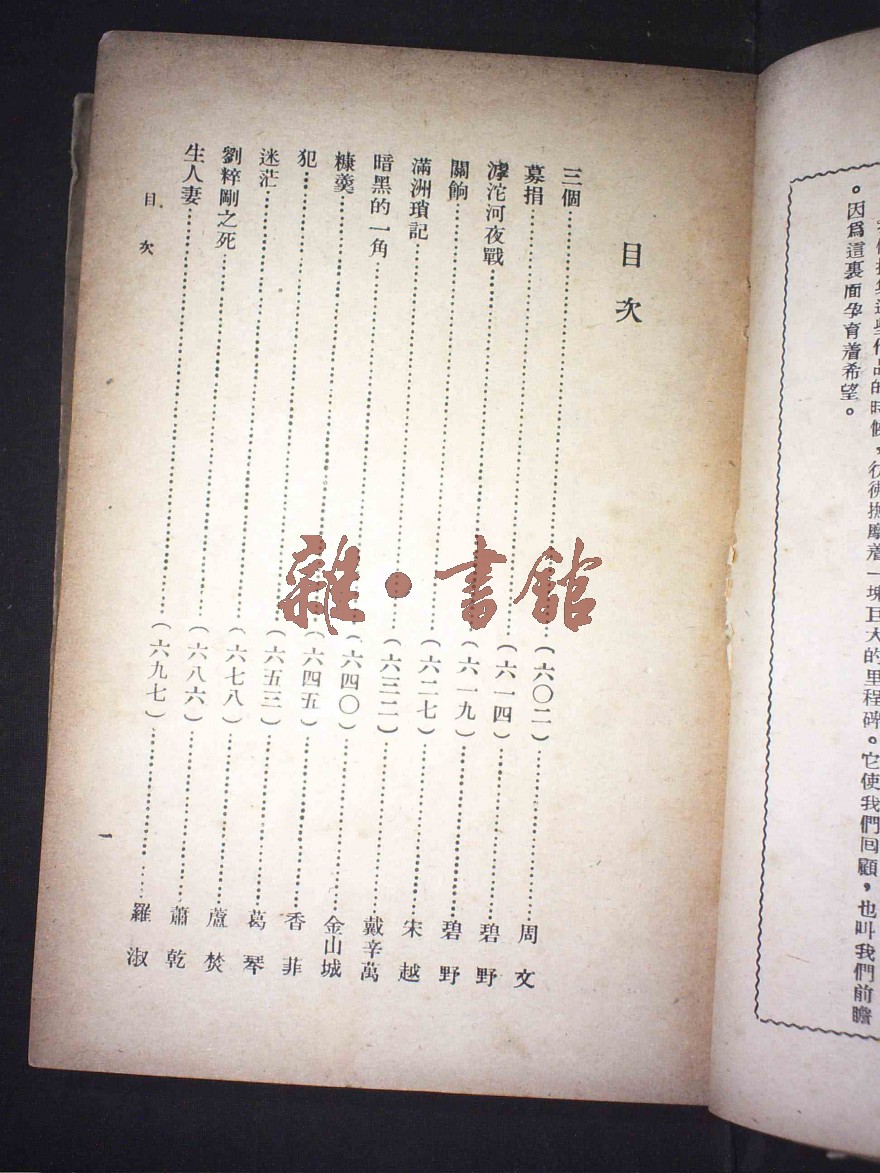 這些作品的時候，彷彿撫摩着一塊巨大的里程碑。它使我們回顧，也叫我們前瞻
。因爲這裏面孕育着希望。
目次
三個……(六〇二)……周文
募捐……(六一四)……碧野
滹沱河夜戰……(六一九)……碧野
關餉……(六二七)……宋越
滿洲瑣記……(六三二)……戴辛萬
暗黑的一角……(六四〇)……金山城
糠羹……(六四五)……香菲
犯……(六五三)……葛琴
迷茫……(六七八)……蘆焚
劉粹剛之死……(六八六)……蕭乾
生人妻……(六九七)……羅淑
目次
一
雜·書館